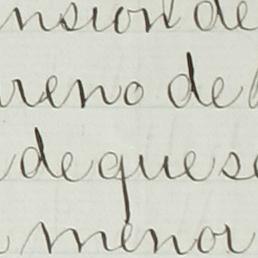 nsion de
reno de
de que se
menor